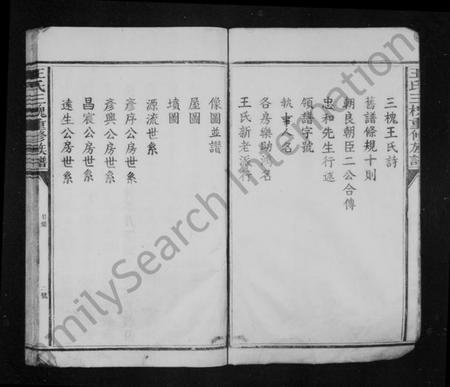 三槐王氏詩
舊譜條規十則
朝良朝臣二公合傳
忠和先生行述
領譜字號
執事人名
各房樂助派名
王氏新老派行
像圖並讚
屋圖
墳圖
源流世系
彥庠公房世系
彥興公房世系
昌宸公房世系
遠生公房世系
王氏三槐重修族譜
FamilySearch International